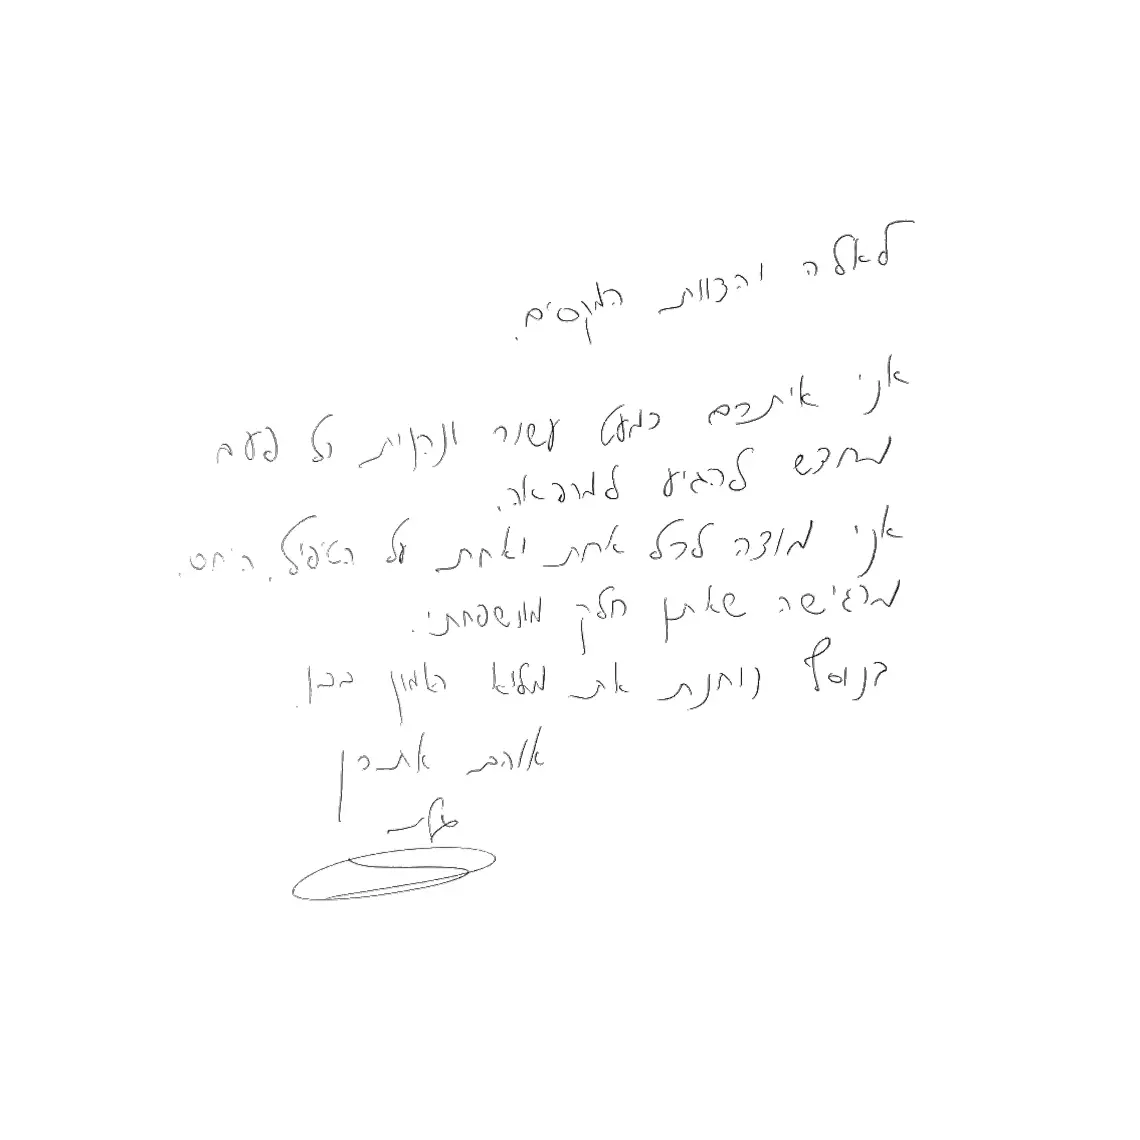 לאלה והצוות המקסים.
אני איתכם כמעט עשור ונהנית כל פעם
מחדש להגיע למרפאה.
אני מודה לכל אחת ואחת על הטיפול, היחס.
מרגישה שאתן חלק ממשפחתי.
בנוסף נותנת את מלוא האמון בכן.
אוהבת אתכן